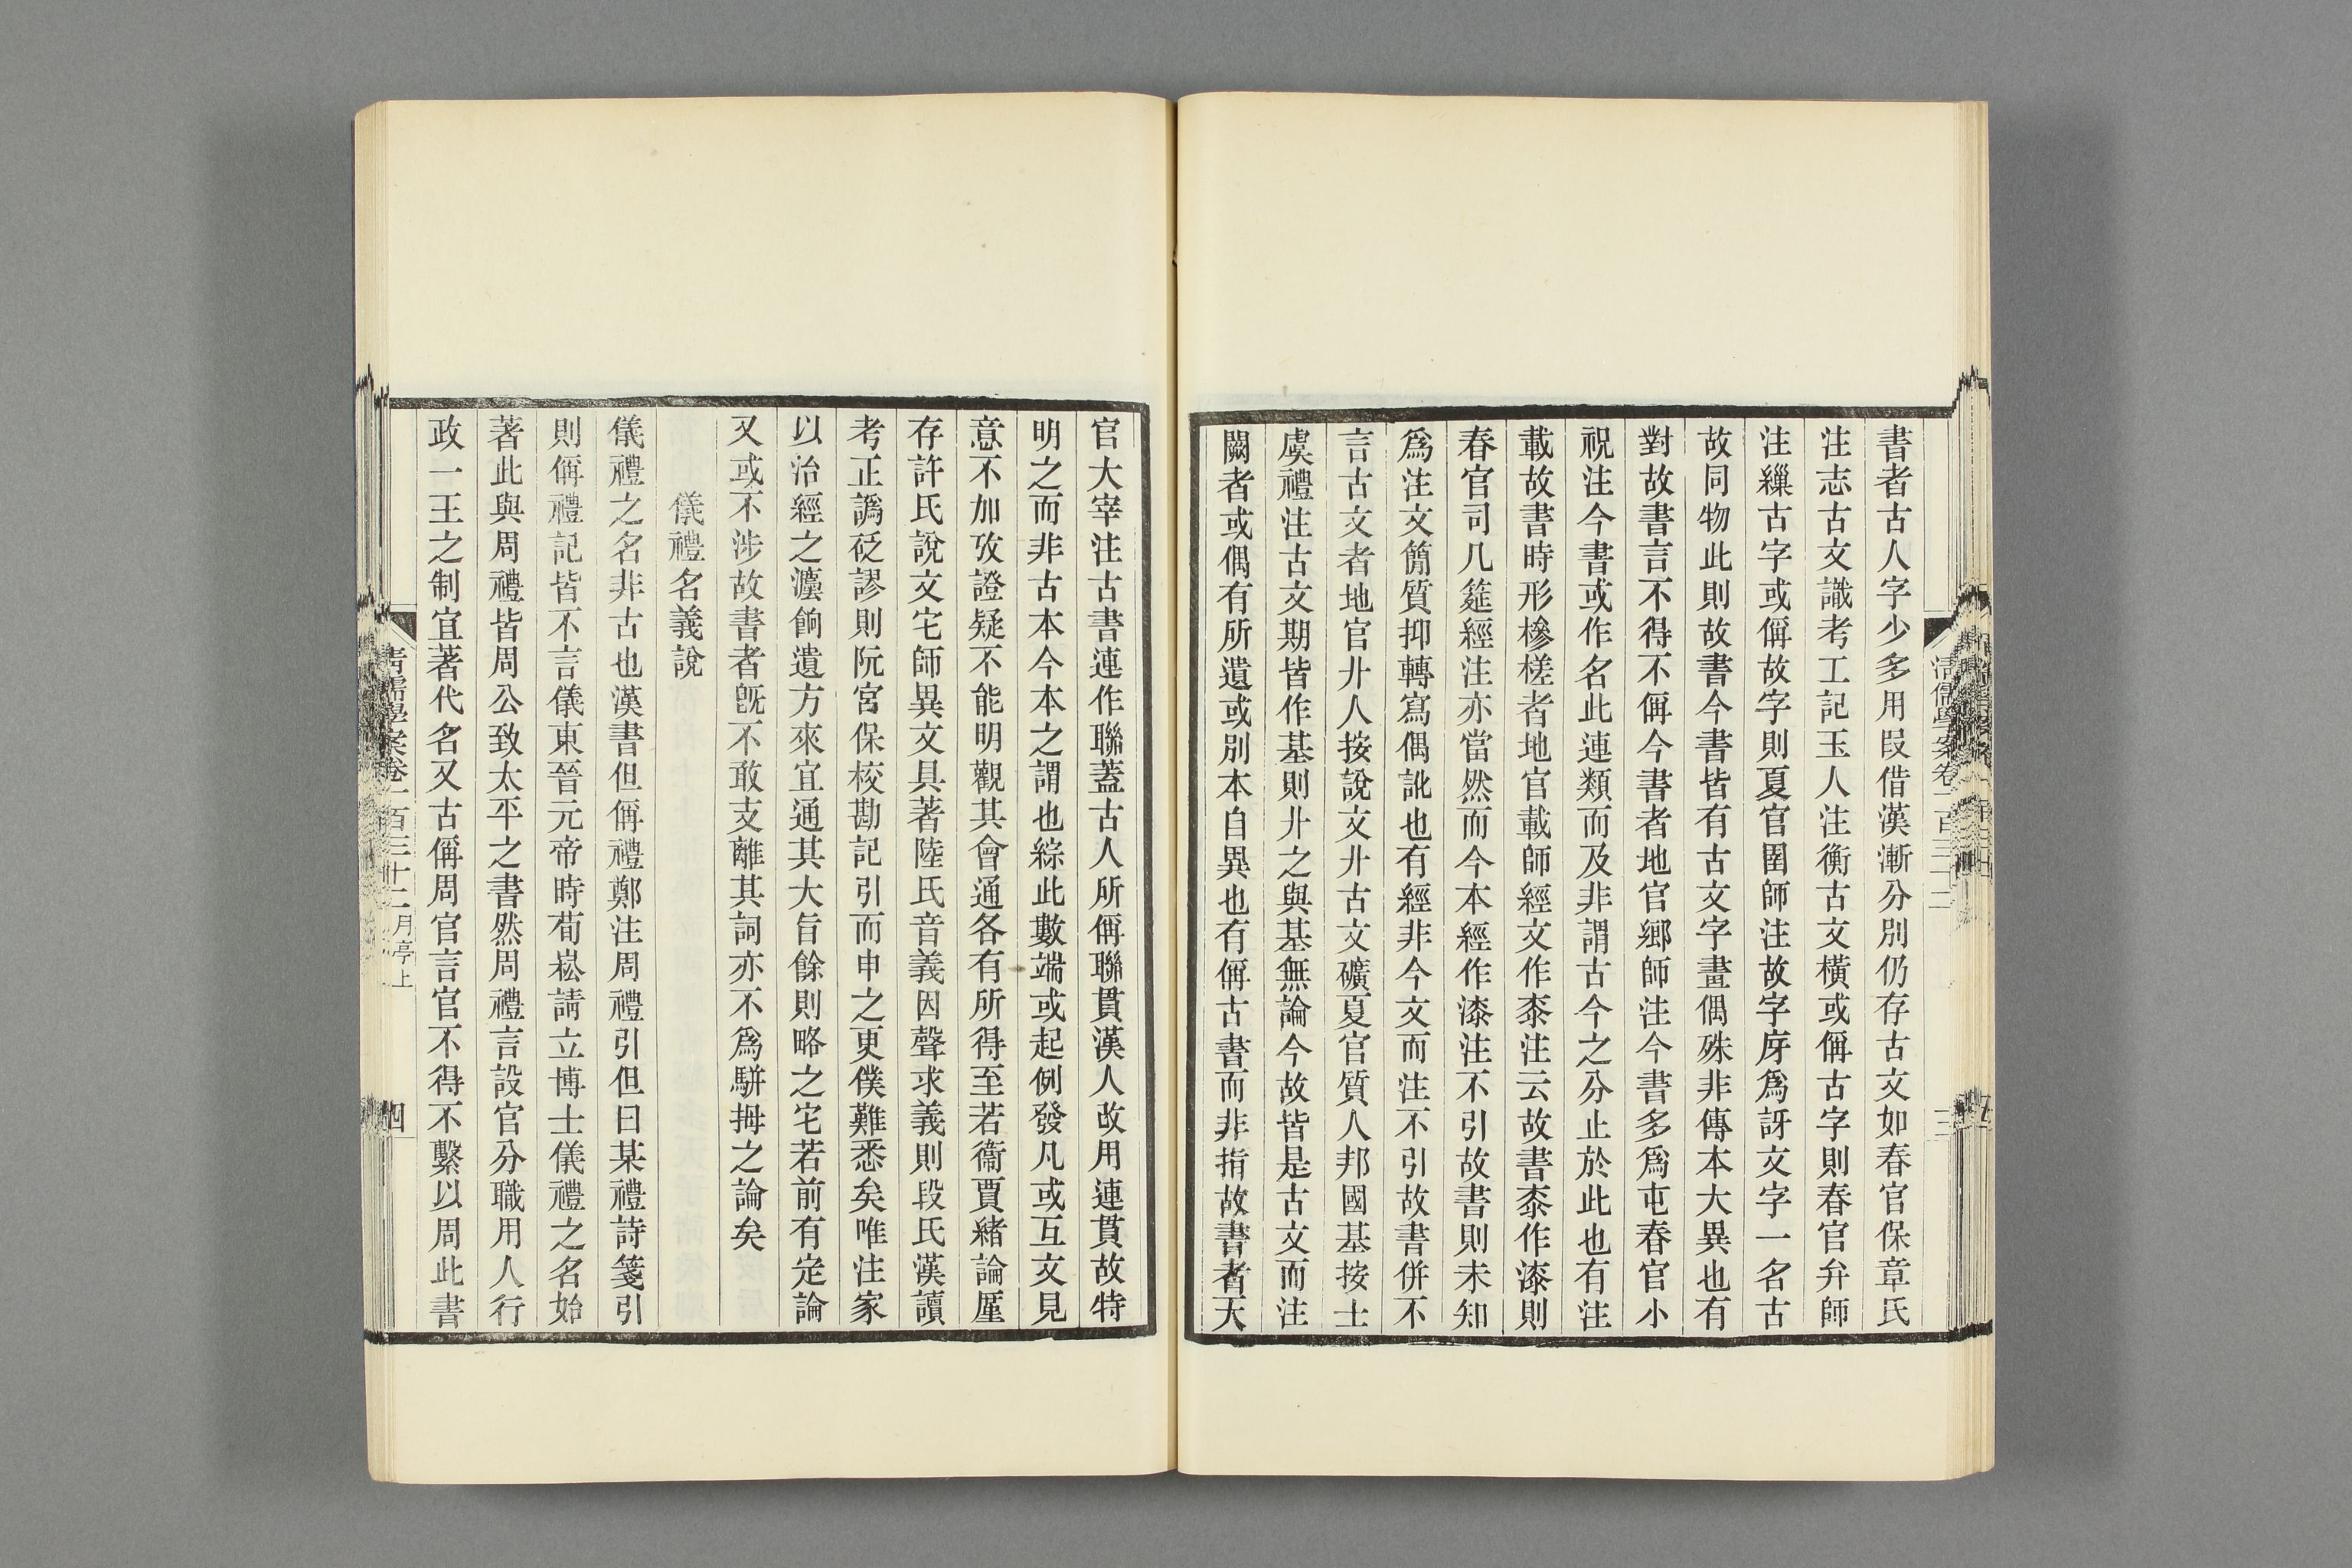 書者古人字少多用叚借漢漸分別仍存古文如春官保章氏
注志古文識考工記玉人注衡古文橫或偁古字則春官弁師
注繅古字或偁故字則夏官圉師注故字庌爲訝文字一名古
故同物此則故書今書皆有古文字畫偶殊非傳本大異也有
對故書言不得不偁今書者地官鄉師注今書多爲屯春官小
祝注今書或作名此連類而及非謂古今之分止於此也有注
載故書時形槮槎者地官載師經文作桼注云故書桼作漆則
春官司几筵經注亦當然而今本經作漆注不引故書則未知
爲注文簡質抑轉寫偶訛也有經非今文而注不引故書併不
言古文者地官廾人按說文廾古文礦夏官質人邦國基按士
虞禮注古文期皆作基則廾之與基無論今故皆是古文而注
闕者或偶有所遺或別本自異也有偁古書而非指故書者天
清儒學案卷一百三十二
三
官大宰注古書連作聯蓋古人所偁聯貫漢人改用連貫故特
明之而非古本今本之謂也綜此數端或起例發凡或互文見
意不加攷證疑不能明觀其會通各有所得至若衞賈緒論厪
存許氏說文宅師異文具著陸氏音義因聲求義則段氏漢讀
考正譌砭謬則阮宮保校勘記引而申之更僕難悉矣唯注家
以治經之灋餉遺方來宜通其大旨餘則略之宅若前有定論
又或不涉故書者旣不敢支離其詞亦不爲駢拇之論矣
儀禮名義說
儀禮之名非古也漢書但偁禮鄭注周禮引但曰某禮詩箋引
則偁禮記皆不言儀東晉元帝時荀崧請立博士儀禮之名始
著此與周禮皆周公致太平之書然周禮言設官分職用人行
政一王之制宜著代名又古偁周官言官不得不繫以周此書
清儒學案卷一百三十二 月亭上
四